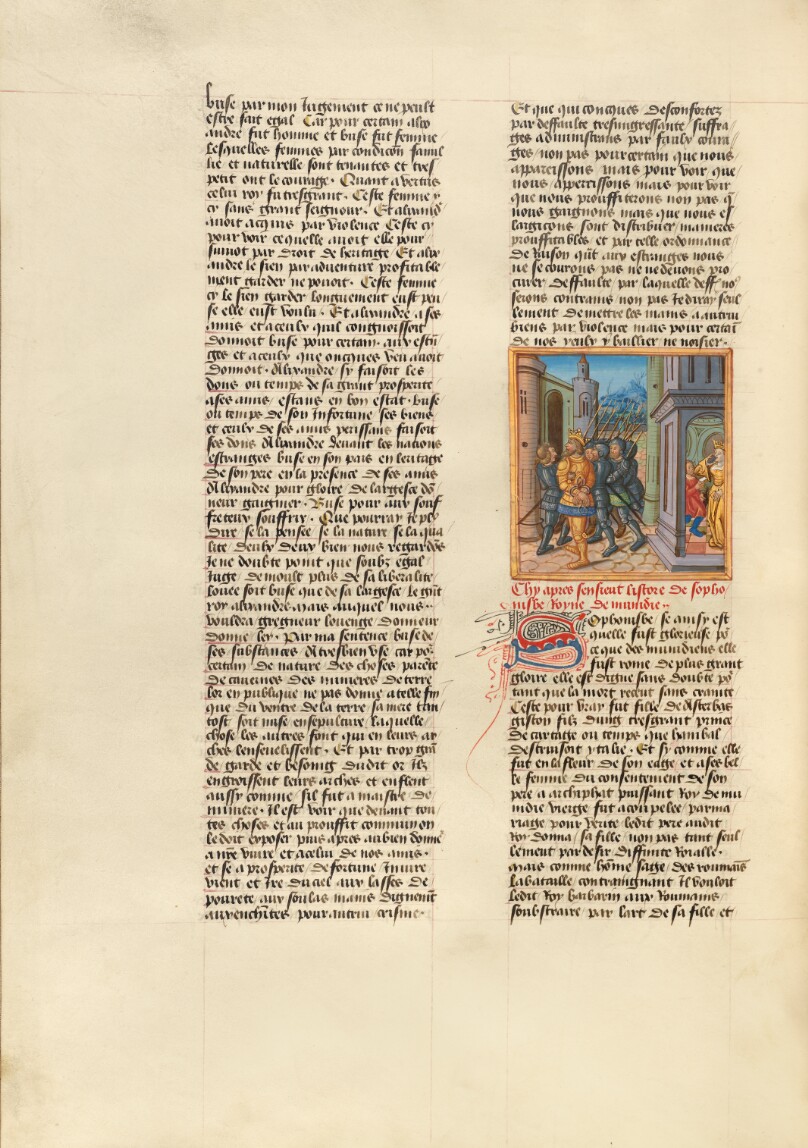 buse par mon Iugement ce ne peult
estre fait egal Car pour certain alix
andre fut homme et buse fut femme
Lesquelles femmes par condicon famil
lie et naturelle sont tenantes et tres
petit ont le courage. Quant a vertus
celui roy fu tresgrant. Ceste femme y
cy sans grant seignour. Et alixand
auoit acquis par violence Ceste cy
pour voir ce quelle auoit elle pour
suiuoit par Droit de heritage Et alix
andre le sien par aduenture profitable
ment garder ne pouoit. Ceste femme
cy le sien garder longuement eust peu
se elle eust voulu. Et alixandre a ses
amis et a ceulx quil congnoissoit
donnoit buse pour certain. aux estra
ges et a ceulx que oncques veu auoit
donnoit. Alixandre sy faisoit les
dons ou temps de sa grant prosperite
a ses amis estans en bon estat. buse
ou temps de son Infortune ses biens
et ceulx de ses amis perissans faisoit
ses dons Alixandre deuant les nations
estranges buse en son pais en leritage
de son pere en la presence de ses amis
Alixandre pour gloire de largesce dō
neur gaignier. Buse pour aux souf
freteux souffrir. Que pourray Ie plꝰ
dire se la pensee se la nature se la qua
lite deulx deux bien nous regardōs
Ie ne doubte point que soubz egal
Iuge de moult plus de sa liberalite
louee soit buse que de sa largesce le gūt
roy alixandre mais auquel nous
vouldra gregneur louenge donneur
donne ler. Par ma sentence buse de
ses substances A tresbien use car po
certain de nature des choses parete
de cauernes des minieres de terre
lor en publique ne pas donne a telle fin
que du ventre de la terre sa mere tan
tost soit mise en sepulcure laquelle
chose les autres font qui en leurs ar
ches lenseuelissent. Et par trop grāt
de garde et besoing dudit or Ilz
engroissent leurs arches et enflent
aussy comme sil fut a maistre de
miniere. Il est voir que deuant tou
tes choses et au prouffit commun on
le doit exposer puis apres au bien donne
a nre viure et a celui de nos amis.
et se a prosperite de fortune Iniure
vient et Ire du ciel aux lasses de
pourete aux soulas mains dignemt
aux enchutes pour autrui crisme.
Et que quiconques desconfortez
par deffaulte tresingressante suffra
ges administrans par faulx coura
ges non pas pour certain que nous
apparcissons mais pour voir que
nous apperissons mais pour voir
que nous prouffiterons non pas q̄
nous gaignons mais que nous es
largicons sont distribuer manieres
prouffitables et par telle ordonnance
de Raison qūt aux estranges nous
ne secourons pas ne ne deuons pro
curer deffaulte par laquelle deff no
serons contrains non pas Ie diray seul
lement de mettre les mains a autrui
biens par violence mais pour certaī
de nos yeulx y baillier ne noisier.
Chy apres sensieut listore de sopho
nisbe Royne de numidie
Sophonisbe se ainsy est
quelle fust glorieuse po
ce que des numidiens elle
fust royne de plus grant
gloire elle est digne sans doubte po
tant que la mort receut sans crainte
Ceste pour vray fut fille de disterbas
giston filz dung tresgrant prince
de cartage ou temps que hanibal
destruisoit ytalie. Et sy comme elle
fut en la fleur de son eage et asses bel
le femme du consentement de son
pere a archiphat puissant Roy de nu
midie vierge fut acouplee par ma
riage pour verite ledit pere audit
Roy donna sa fille non pas tant seul
lement par desir diffinite Roialle.
mais comme hōme sage des roumains
la bataille contraingnant Il vouloit
ledit Roy barbarin aux Roumains
soubstraire par lart de sa fille et